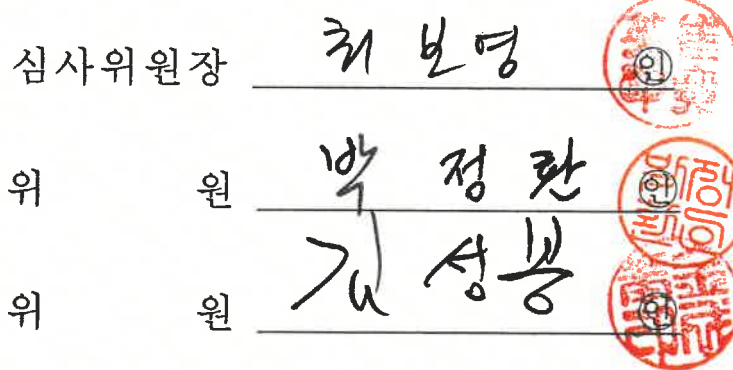 심사위원장 최보영 인
위 원 박정환 인
위 원 김성봉 인